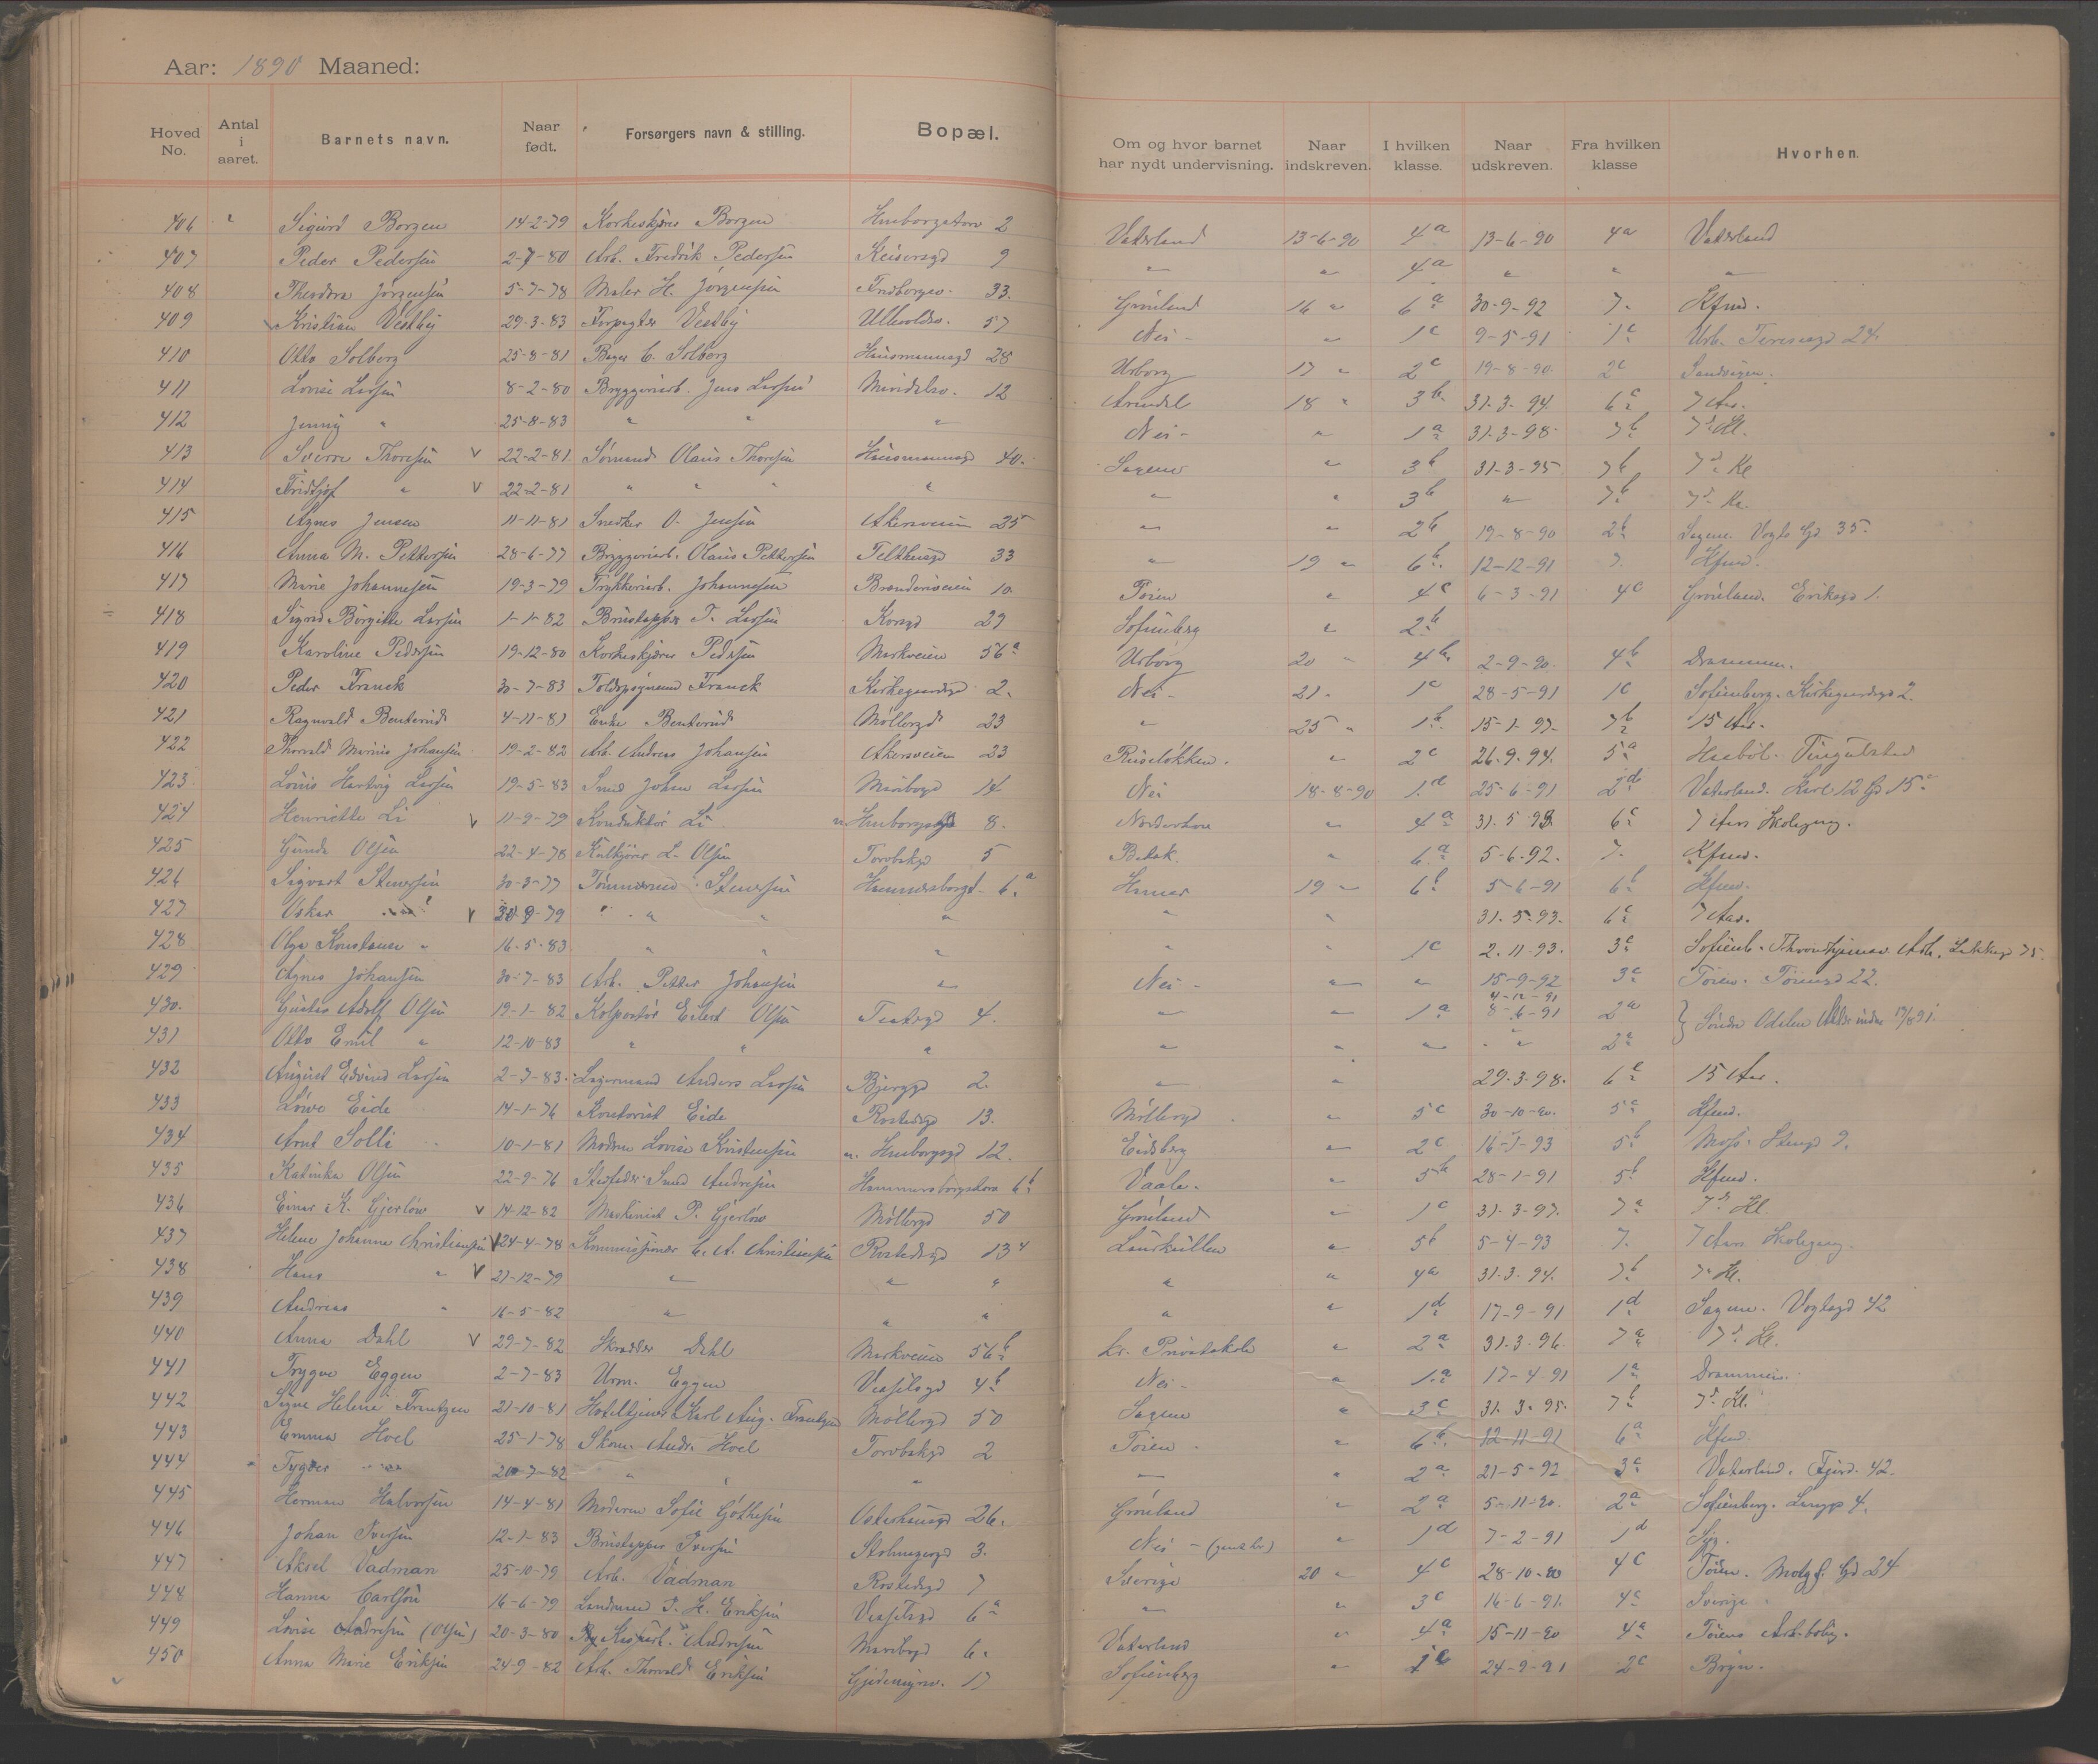 Aar: 1890 Maaned:
Hoved No. Antal i aaret. Barnets navn. Naar født. Forsørgers navn & stilling. Bopæl. Om og hvor barnet har nydt undervisning. Naar indskreven. I hvilken klasse. Naar udskreven. Fra hvilken klasse Hvorhen.
406 " Sigurd Borgen 14-2-79 Korkeskjærer Borgen 2 Vaterland 13-6-90 4a 13-6-90 4a Vaterland
407 Peder Pedersen 2-7-80 Arb. Fredrik Pedersen Keisersgd 9 " " 4a " " "
408 Theodora Jörgensen 5-7-78 Maler H. Jörgensen 33. Grönland 16 " 6a 30-9-92 7. Kfmd.
409 Kristian Vestby 29-3-83 Forpagter Vestby Ullevoldsv. 57 Nei - " 1c 9-5-91 1c 24.
410 Otto Solberg 25-8-81 Bager C. Solberg Hausmannsgd 28 Urborg 17 " 2c 19-8-90 2c Sandvigen.
411 Lovise Larsen 8-2-80 Bryggeriarb. Jens Larsen 12 Arendal 18 " 3b 31-3-94 6c 7 Aar.
412 Jenny " 25-8-83 " " " Nei - " 1a 31-3-98 7b 7de Kl.
413 Sverre Thoresen V 22-2-81 Sömand Olaus Thoresen Hausmannsgd 40. Sagene " 3b 31-3-95 7b 7de Kl
414 Fridtjof " V 22-2-81 " " " " " " 3b " 7b 7de Kl.
415 Agnes Jensen 11-11-81 Snedker O. Jensen Akersveien 25 " " 2b 19-8-90 2b Sagene Vogts Gd 35
416 Anna M. Pettersen 28-6-77 Bryggeriarb. Olaus Pettersen Telthusgd 33 " 19 " 6b. 12-12-91 7. Kfmd.
417 Marie Johannesen 19-3-79 Trykkeriarb. Johannesen 10 Töien " 4c 6-3-91 4c Grönland. Eriksgd 1.
418 Sigrid Börgitte Larsen 1-1-82 Brustapper T. Larsen Korsgd 29 Sofienberg " 2b
419 Karoline Pedersen 19-12-80 Korkeskjærer Pedersen Markveien 56a Urborg 20 - 4b. 2-9-90. 4b Drammen.
420 Peder Franck 30-7-83 Toldopsynsmand Franck Kirkegaardsgd 2. Nei - 21 - 1c 28-5-91 1c Sofienberg. Kirkegaardsgd 2.
421 Ragnvald Benterud 4-11-81 Enke Benterud Möllergd 23 " 25 " 1b. 15-1-97 7b 15 Aar.
422 Thorvald Marius Johansen 19-2-82 Arb. Andreas Johansen Akersveien 23 Ruselökken. " 2c 26.9.94. 5a
423 Louis Hartvig Larsen 19-5-83 Smed Johan Larsen Maribogd 14 Nei 18-8-90 1.d 25-6-91 2d Vaterland. Karl 12 Gd 15c
424 Henriette Li V 11-9-79 Konduktör Li 8. Norderhov " 4a 31.5 93. 6c 7 Aars Skolegang.
425 Gunda Olsen 22-4-78 Kulkjörer L. Olsen Torvbakgd 5 Betak. " 6a 5-6-92. 7. Kfmd.
426 Sigvart Stenersen 30-3-77 Tömmermd. Stenersen Hammersborgt 6a Hamar 19 - 6b 5-6-91 6b Kfmd.
427 Oskar V 9-79 " " " " " 31.5.93. 6c 7 Aar.
428 Olga Konstanse " 16-5-83 " " " " " 1c 2.11-93. 3c
429 Agnes Johansen 30-7-83 Arb. Petter Johansen " Nei - " " 15-9-92 3c Töien. Töiengd 22.
430. Gustav Adolf Olsen 19-1-82 Kolportör Eilert Olsen 4. " " 1a 4-12-91 8-6-91 2a Söndre Odalen
431 Otto Emil " 12-10-83 " " " " " " " 2a
432 August Edvard Larsen 2-7-83. Lagermand Anders Larsen Bjerggd 2. " " 29.3.98. 6c 15 Aar.
433 Lowo Eide 14-1-76 Kontorist Eide Rostedsgd 13. Möllergd " 5c 30-10-90. 5c Kfmd.
434 Arnt Solli 10-1-81 Moderen Lovise Kristensen 12. Eidsberg " 2c 16-1-93 5b Moss. 9.
435 Katinka Olsen 22-9-76 Stedfader Smed Andresen Hammersborgtorv 6b Vaale. " 5b 28-1-91 5b Kfmd.
436 Einar K. Gjerlöw V 14-12-82 Maskinist P. Gjerlöw Möllergd 50 Grönland " 1c 31-3-97. 7a 7de Kl.
437 Helene Johanne Christiansen V 24-4-78 Kommissionær C. A. Christiansen Rostedsgd 13 Laurkullen " 5b 5-4-93 7. 7 Aars Skolegang.
438 Hans " V 21-12-79 " " " " " 4a 31.3.94. 7b 7de Kl.
439 Andreas " 16-5-82 " " " " " 1d 17-9-91 1d Sagene. Vogtsgd 42
440 Anna Dahl V 29-7-82 Skrædder Dahl Markveien 56b Kr. Privatskole " 2a 31.3.96. 7a 7de Kl.
441 Trygve Eggen 2-7-83 Urm. Eggen Vesselsgd 4b Nei - " 1.a 17-4-91 1a Drammen.
442 Signe Helene Frantzen 21-10-81 Hoteltjener Karl Aug. Frantzen Möllergd 50 Sagene " 3c 31.3.95. 7b 7de Kl.
443 Emma Hoel 25-1-78 Skom. Andr. Hoel Torvbakgd 2 Töien. " 6b. 12-11-91 6a Kfmd.
444 Sygver " 20-7-82 " " " " " 2a 21-5-92 3c Vaterland. 42.
445 Herman Halvorsen 14-4-81 Moderen Sofie Göthesen Osterhausgd 26. Grönland " 2a 5-11-90. 2a Sofienberg. 4.
446 Johan Iversen 12-1-83 Brustapper Iversen Stolmagergd 3. Nei - " 1d 7-2-91 1d
447 Aksel Vadman 25-10-79 Arb. Vadman Rostedsgd 7 Sverige 20 " 4c 28-10-90 4c Töien. 24
448 Hanna Carlson 16-6-79 Landmand P. H. Eriksen Vesselsgd 6a " " 3c 16-6-91. 4c Sverige
449 Lovise Andresen (Olsen) 20-3-80 Andresen Maribogd 6. Vaterland " 4a 15-11-90 4a Töiens Arb.bolig.
450 Anna Marie Eriksen 24-9-82 Arb. Thorvald Eriksen 17 Sofienberg " 24-9-91 2c Bryn.